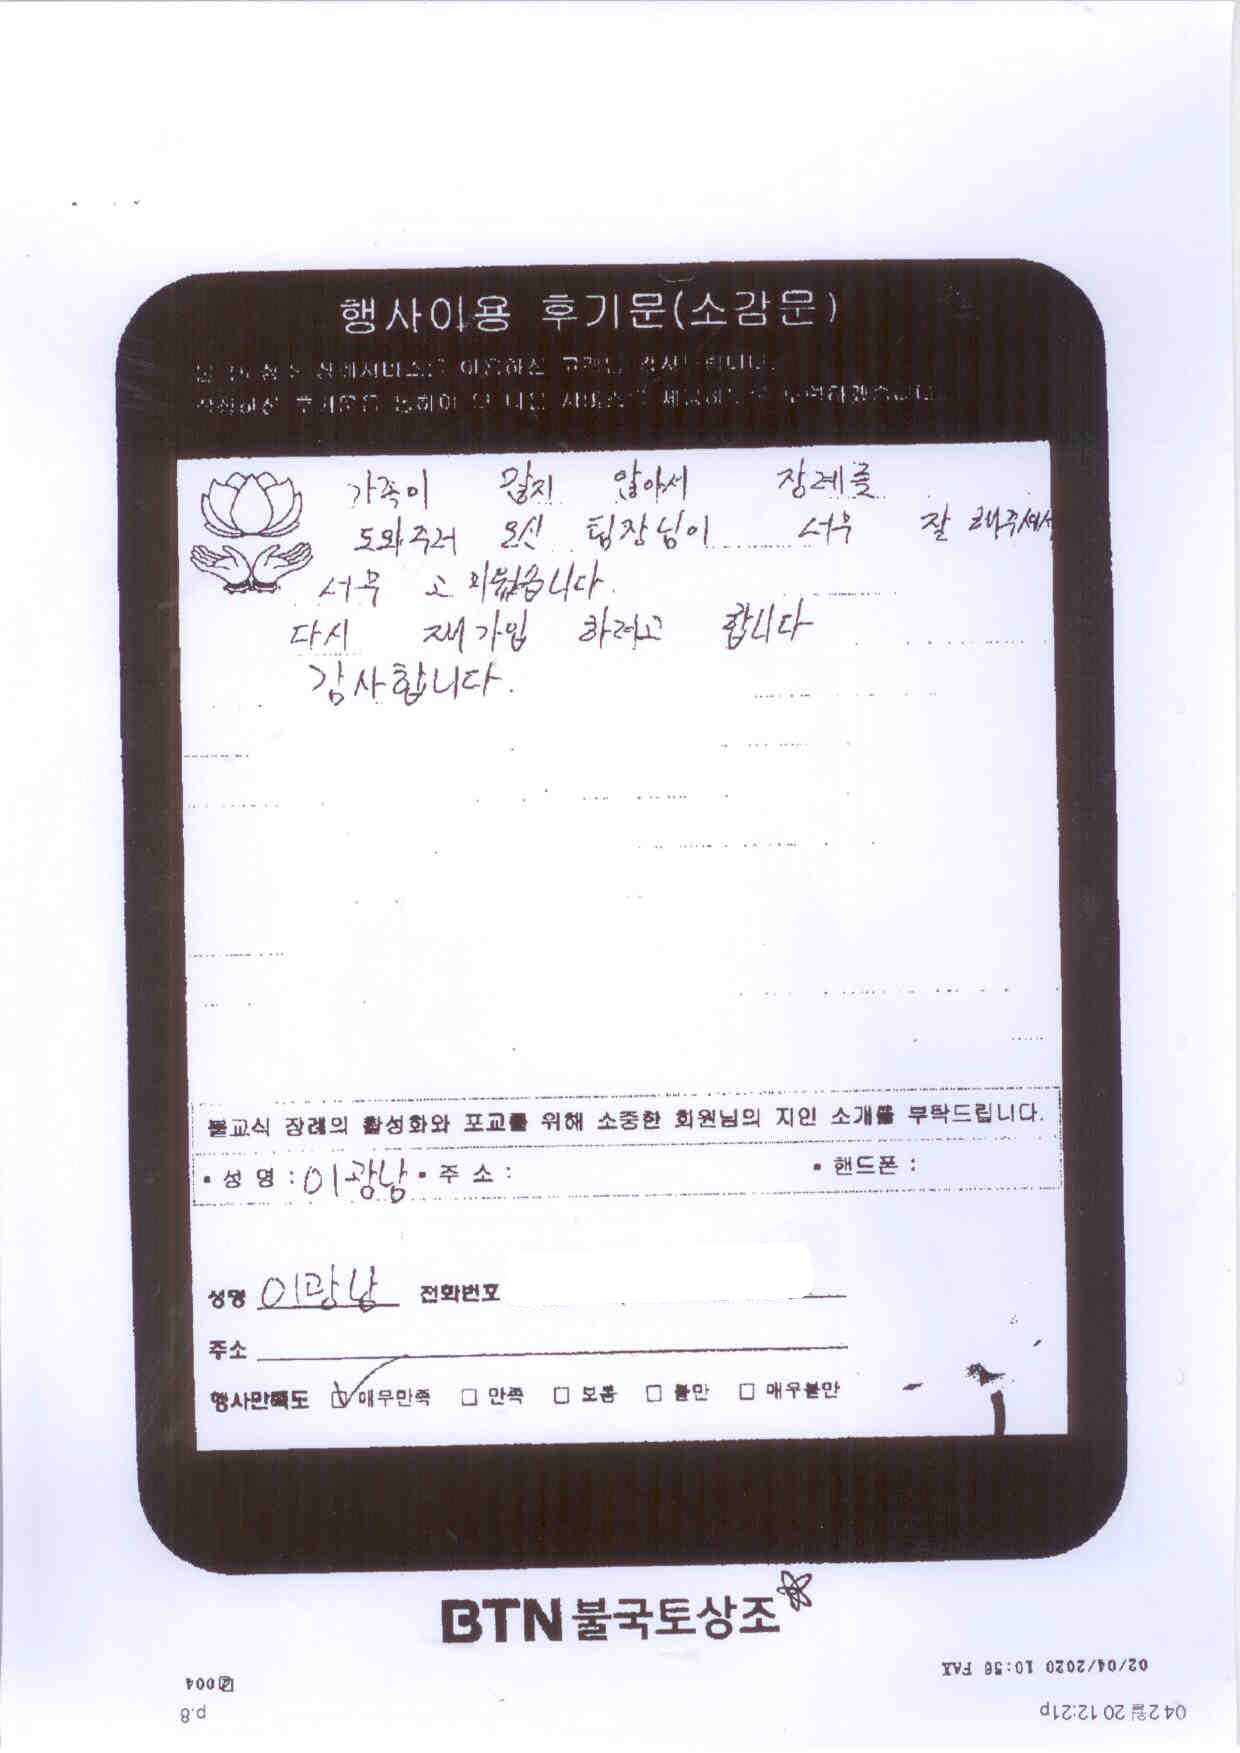 행사이용 후기문(소감문)
이용하신 고객님
가족이 많지 않아서 장례를
도와주러 오신 팀장님이 너무 잘 해주셔서
너무 고마웠습니다.
다시 재가입 하려고 합니다
감사합니다.
불교식 장례의 활성화와 포교를 위해 소중한 회원님의 지인 소개를 부탁드립니다.
• 성 명 : 이광남 • 주 소 : • 핸드폰 :
성명 이광남 전화번호
주소
행사만족도 ☑ 매우만족 □ 만족 □ 보통 □ 불만 □ 매우불만
BTN 불국토상조
02/04/2020 10:56 FAX
004
04 2월 20 12:21p
p.8